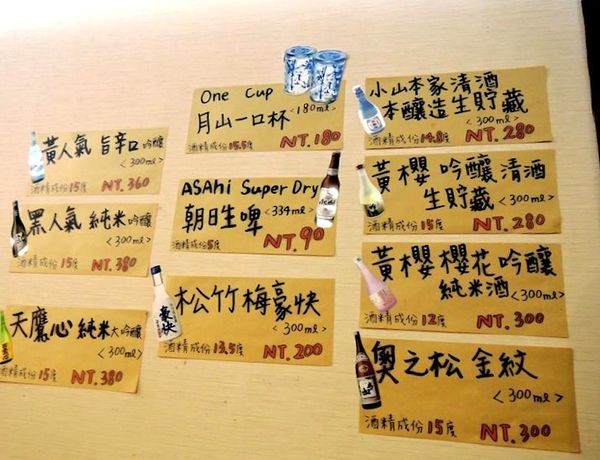 黃人氣 旨辛口 吟釀
<300ml>
酒精成份15度 NT.360
黑人氣 純米吟釀
<300ml>
酒精成份15度 NT.380
天鷹心 純米大吟釀
<300ml>
酒精成份15度 NT.380
One Cup
<180ml>
月山一口杯
酒精成份15.5度 NT.180
ASAHi Super Dry
朝日生啤 <334ml>
酒精成份5度 NT.90
松竹梅豪快
<300ml>
酒精成份13.5度 NT.200
小山本家清酒
本釀造生貯藏
<300ml>
酒精成份14.8度 NT.280
黃櫻 吟釀清酒
生貯藏
<300ml>
酒精成份15度 NT.280
黃櫻櫻花吟釀
純米酒
<300ml>
酒精成份12度 NT.300
奧之松金紋
<300ml>
酒精成份15度 NT.300